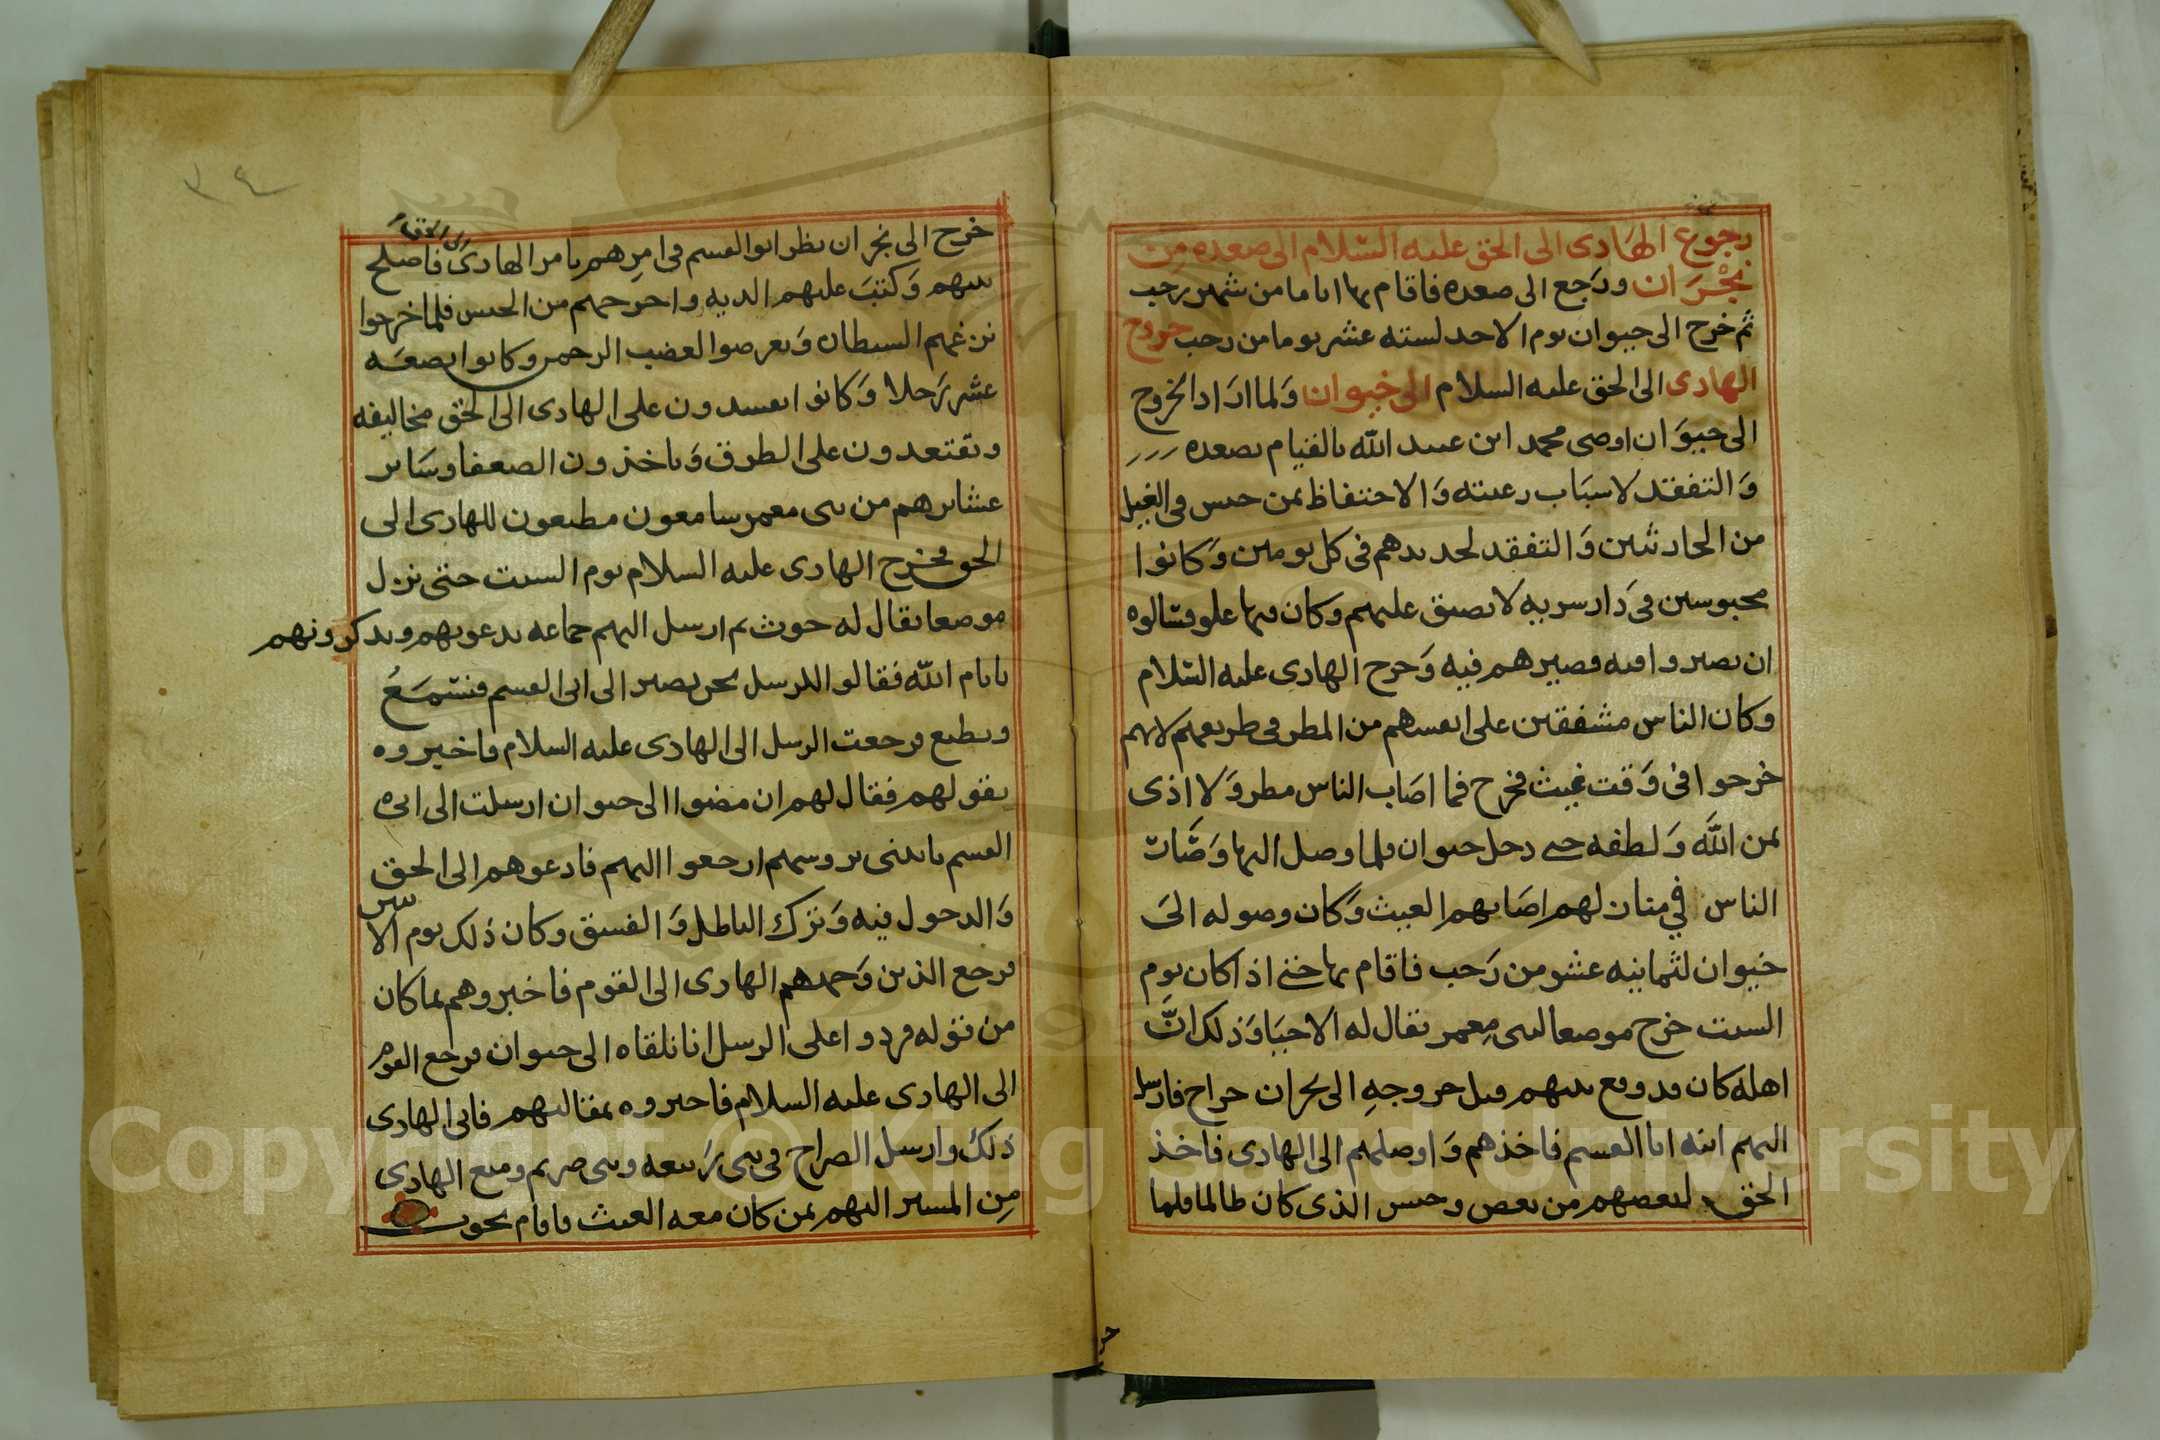 رجوع الهادى الى الحق عليه السلام الى صعده من
نجران ورجع الى صعده فاقام بها اياما من شهر رجب
ثم خرج الى خيوان يوم الاحد لسته عشر يوما من رجب خروج
الهادى الى الحق عليه السلام الى خيوان ولما اراد الخروج
الى خيوان اوصى محمد ابن عبيد الله بالقيام بصعده
والتفقد لاسباب رعيته والاحتفاظ بمن حبس فى الغيل
من الحارثيين والتفقد لحديدهم فى كل يومين وكانوا
محبوسين فى دار سريه لا يضيق عليهم وكان فيها علو فسالوه
ان يصيروا فيه فصيرهم فيه وخرج الهادى عليه السلام
وكان الناس مشفقين على انفسهم من المطر فى طريقهم لانهم
خرجوا فى وقت غيث فخرج فما اصاب الناس مطر ولا اذى
بمن الله ولطفه حتى دخل خيوان فلما وصل اليها وصات
الناس في منازلهم اصابهم الغيث وكان وصوله الى
خيوان لثمانيه عشر من رجب فاقام بها حتى اذا كان يوم
السبت خرج موضعا لبنى معمر يقال له الاحبا وذلك ان
اهله كان قد وقع بينهم قبل خروجه الى نجران جراح فارسل
اليهم ابنه ابا القسم فاخذهم واوصلهم الى الهادى فاخذ
الحق لبعضهم من بعض وحبس الذى كان ظالما فلما
خرج الى نجران نظر ابو القسم فى امرهم بامر الهادى فاصلح
بينهم وكتب عليهم الديه واخرجهم من الحبس فلما خرجوا
نزغهم الشيطان وتعرضوا لغضب الرحمن وكانوا بضعه
عشر رجلا وكانوا يفسدون على الهادى الى الحق مخاليفه
ويقتعدون على الطرق وياخذون الضعفا وساير
عشايرهم من بنى معمر سامعون مطيعون للهادى الى
الحق فخرج الهادى عليه السلام يوم السبت حتى نزل
موضعا يقال له حوث ثم ارسل اليهم جماعه يدعونهم ويذكرونهم
بايام الله فقالوا للرسل نحن نصير الى ابى القسم فنسمع
ونطيع فرجعت الرسل الى الهادى عليه السلام فاخبروه
بقولهم فقال لهم ان مضوا الى خيوان ارسلت الى ابى
القسم ياتينى بروسهم ارجعوا اليهم فادعوهم الى الحق
والدخول فيه وترك الباطل والفسق وكان ذلك يوم الاثنين
فرجع الذين وجههم الهادى الى القوم فاخبروهم بما كان
من قوله فردوا على الرسل انا نلقاه الى خيوان فرجع القوم
الى الهادى عليه السلام فاخبروه بمقالتهم فابى الهادى
ذلك وارسل الصراح فى بنى ربيعه وبنى صريم ومنع الهادى
من المسير اليهم بمن كان معه الغيث فاقام بحوث